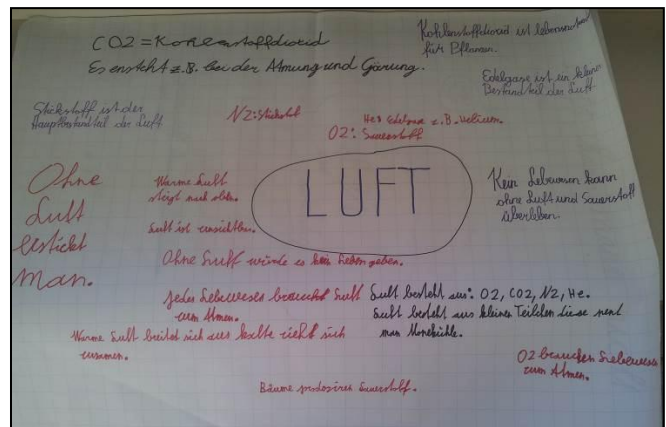 CO2 = Kohlenstoffdioxid
Es ensteht z.B. bei der Atmung und Gärung.
Kohlenstoffdioxid ist lebens
für Pflanzen.
Edelgase ist ein klein
Bestandteil der Luft.
Stickstoff ist der
Hauptbestandteil der Luft
N2: Stickstoff
He: Edelgase z.B. Helium.
O2: Sauerstoff
Ohne
Luft
erstickt
man.
Warme Luft
steigt nach oben.
Luft ist unsichtbar.
LUFT
Kein Lebewesen kann
ohne Luft und Sauerstoff
überleben.
Ohne Luft würde es kein Leben geben.
Jedes Lebeweses braucht Luft
zum Atmen.
Luft besteht aus: O2, CO2, N2, He.
Luft besteht aus kleinen Teilchen diese nent
man
Warme Luft breitet sich aus kalte zieht sich
zusammen.
O2 brauchen Lebewese
zum Atmen.
Bäume Sauerstoff.